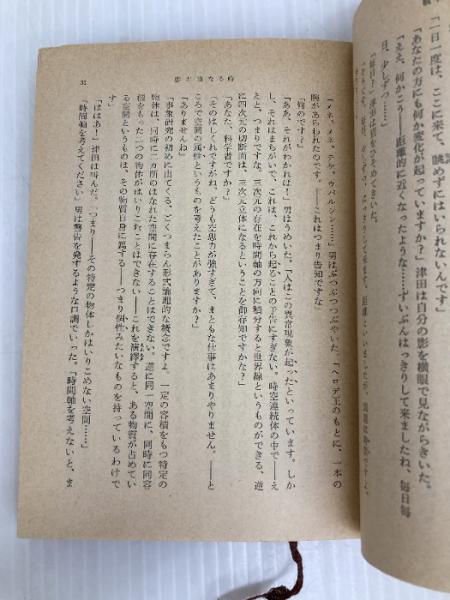 「一日一度は、ここに来て、眺めずにはいられないんです」
「あなたの方にも何か変化が起っていますか?」津田は自分の影を横眼で見ながらきいた。
「ええ、何かこう――距離的に近くなったような……ずいぶんはっきりして来ましたね、毎日毎
日、少しずつ……」
「毎日?」津田は
31
影が重なる時
「メネ、メネ、テケ、ウパルシン……」男はぶつぶつつぶやいた。「ヘロデ王のもとに、一本の
腕があらわれたのです。――これはつまり告知ですな」
「何のです?」
「ああ、それがわかれば!」男はうめいた。「人はこの異常現象が起ったといっています。しか
し、それはまちがいで、これは、これから起ることの予告にすぎない。時空連続体の中で――え
えと、つまりですな、三次元の存在を時間軸の方向に積分すると世界線というものができる、逆
に四次元の切断面は、三次元立体になるということを御存知ですかな?」
「あなた、科学者ですか?」
「そのはしくれですがね、どうも空想力が強すぎて、まともな仕事はあまりやりません。――と
ころで空間の属性というものを考えたことがありますか?」
「ありませんね」
「事象研究の初めに出てくる、ごくつまらん形式論理的な概念ですよ。一定の容積をもつ特定の
物体は、同時に二カ所のはなれた空間に存在することはできない。逆に同一空間に、同時に同容
積をもった二つの物体がはいりこむことはできない――これを演繹すると、ある物質が占めてい
る空間というものは、その物質自身に属する――つまり個性みたいなものを持っているわけで
す」
「ははあ!」津田は叫んだ。「つまり――その特定の物体しかはいりこめない空間……」
「時間軸を考えてください」男は警告を発するような口調でいった。「時間軸を考えないと、ま